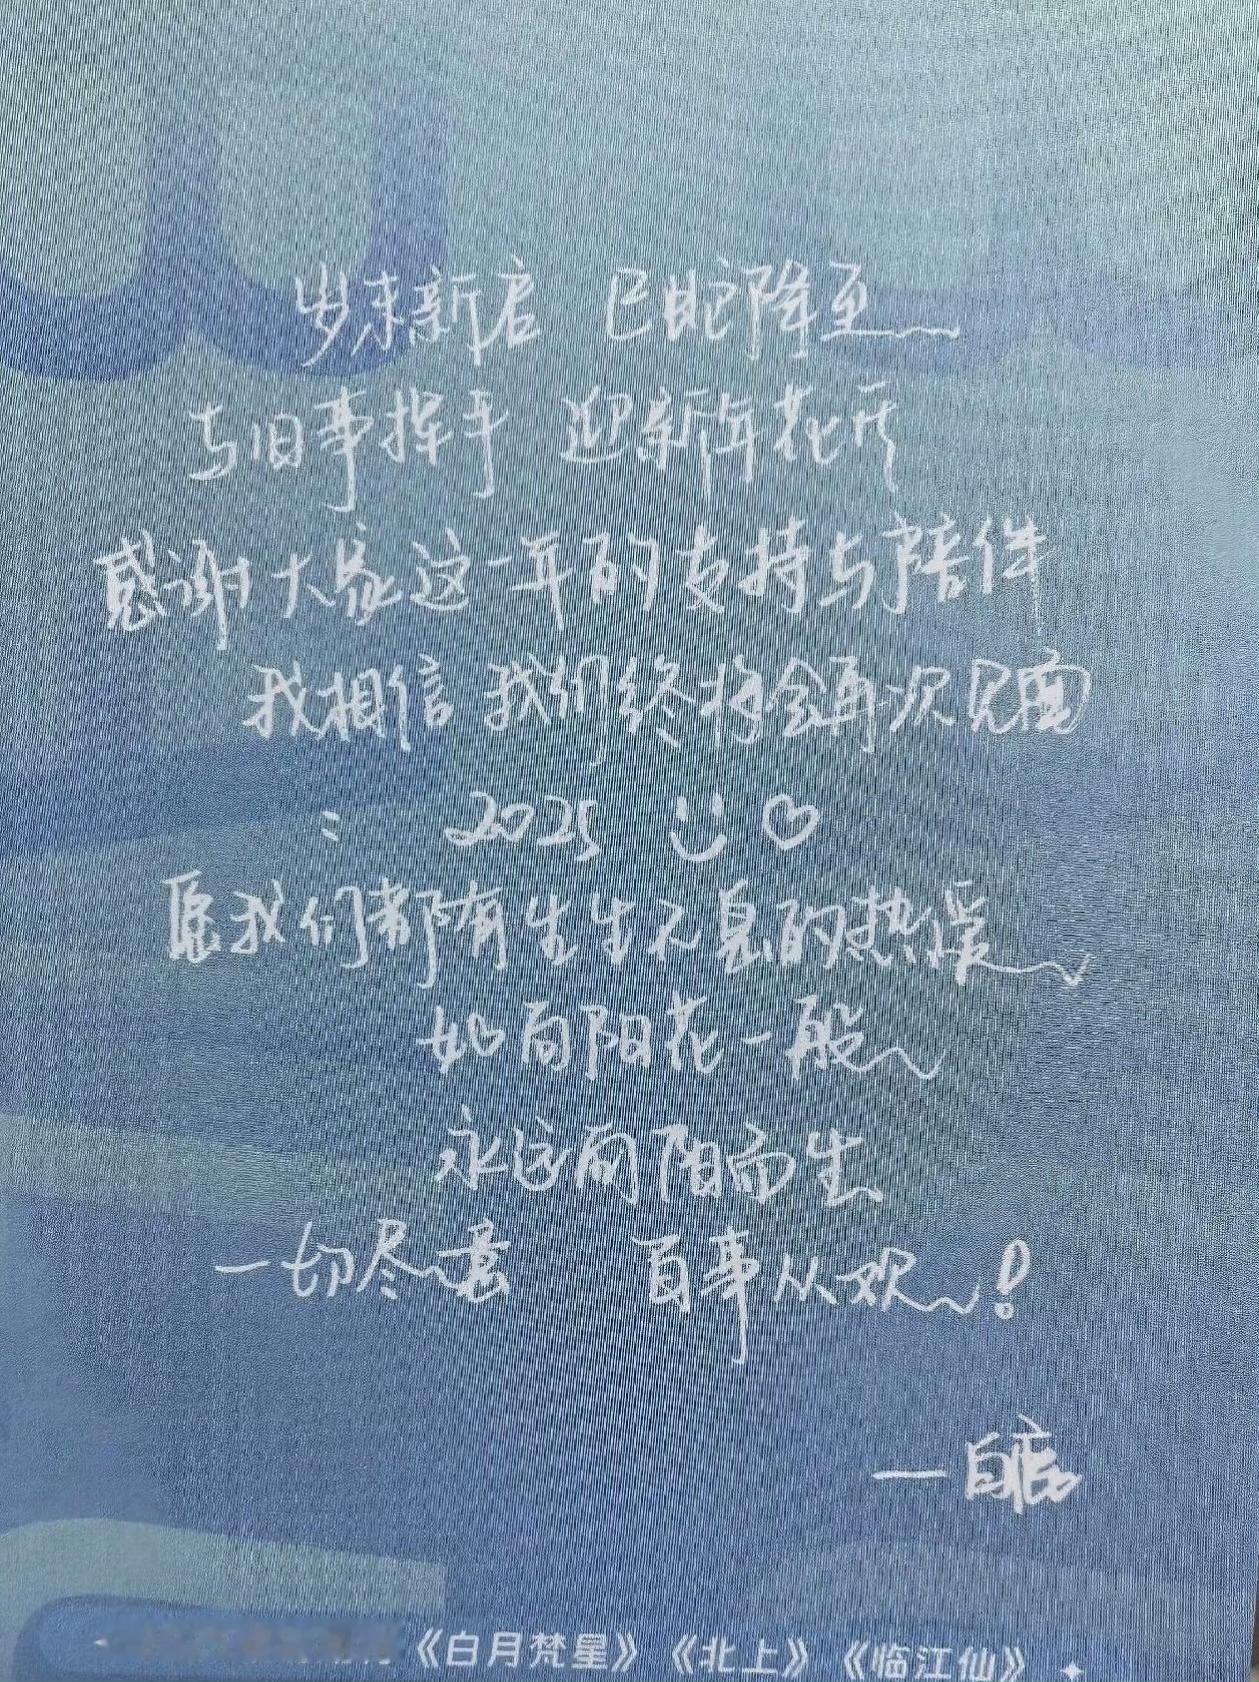 岁末新启 巳蛇降至~
与旧事挥手 迎新年花开
感谢大家这一年的支持与陪伴
我相信 我们终将会再次见面
: 2025 ♡
愿我们都有生生不息的热爱~
如向阳花一般~
永远向阳而生
一切尽意 百事从欢~!
—白鹿
《白月梵星》《北上》《临江仙》